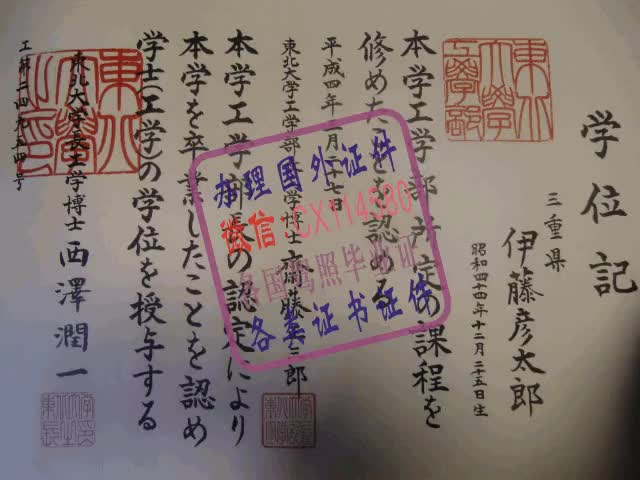 学位記
三重県
伊藤彦太郎
昭和四十四年十二月二五日生
本学工学部所定の課程を
修めたことを認める
平成四年 月二十七日
東北大学工学部 学博士 齋藤 三郎
本学工学部長の認定により
本学を卒業したことを認め
学士(工学)の学位を授与する
東北大学長工学博士 西澤潤一
办理国外证件
微信:CX114580
各国驾照毕业证
各类证书证件